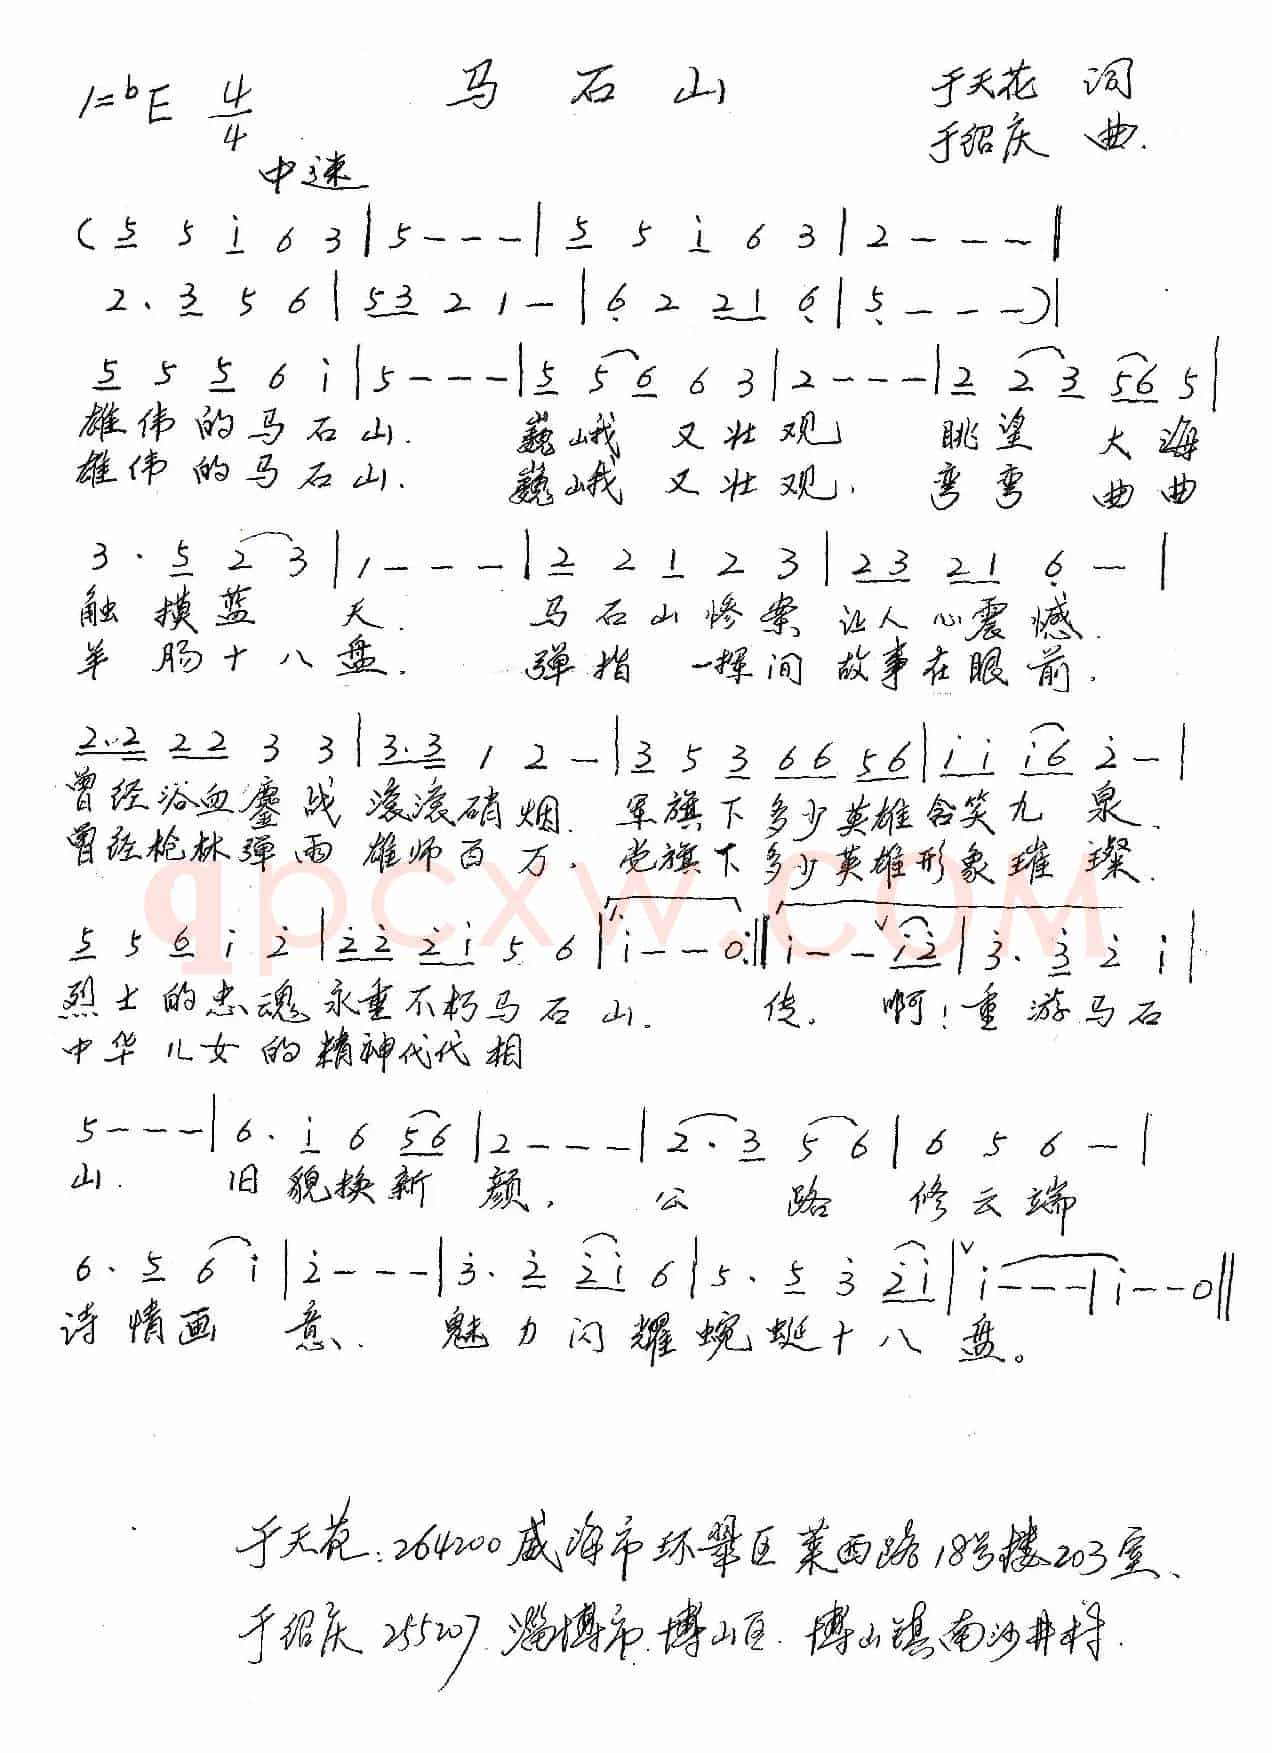 1=bE 4/4 马石山 于天花 词
于绍庆 曲.
中速
( 5 5 i 6 3 | 5 - - - | 5 5 i 6 3 | 2 - - - ‖
2. 3 5 6 | 53 2 1 - | 6 2 21 6 | 5 - - - ) |
5 5 5 6 i | 5 - - - | 5 5 6 6 3 | 2 - - - | 2 2 3 56 5 |
雄伟的马石山. 巍峨又壮观 眺望大海
雄伟的马石山. 巍峨又壮观. 弯弯曲曲
3. 5 2 3 | 1 - - - | 2 2 1 2 3 | 23 21 6 - |
触摸蓝天. 马石山惨案让人心震憾.
羊肠十八盘. 弹指一挥间故事在眼前.
2.2 22 3 3 | 3.3 1 2 - | 3 5 3 66 56 | i i i6 2 - |
曾经浴血鏖战滚滚硝烟. 军旗下多少英雄含笑九泉.
曾经枪林弹雨雄师百万. 党旗下多少英雄形象璀璨.
5 5 6 i 2 | 22 2i 5 6 | 1. i - - 0 :‖ i - - i2 | 3. 3 2 i |
烈士的忠魂永垂不朽马石山. 传。啊!重游马石
中华儿女的精神代代相
5 - - - | 6. i 6 56 | 2 - - - | 2. 3 5 6 | 6 5 6 - |
山. 旧貌换新颜. 公路修云端
6. 5 6 i | 2 - - - | 3. 2 2i 6 | 5. 5 3 2i | i - - - | i - - 0 ‖
诗情画意、魅力闪耀蜿蜒十八盘。
于天花:264200威海市环翠区莱西路18号楼203室、
于绍庆 255207.淄博市.博山区.博山镇南沙井村.
qpcxw.COM